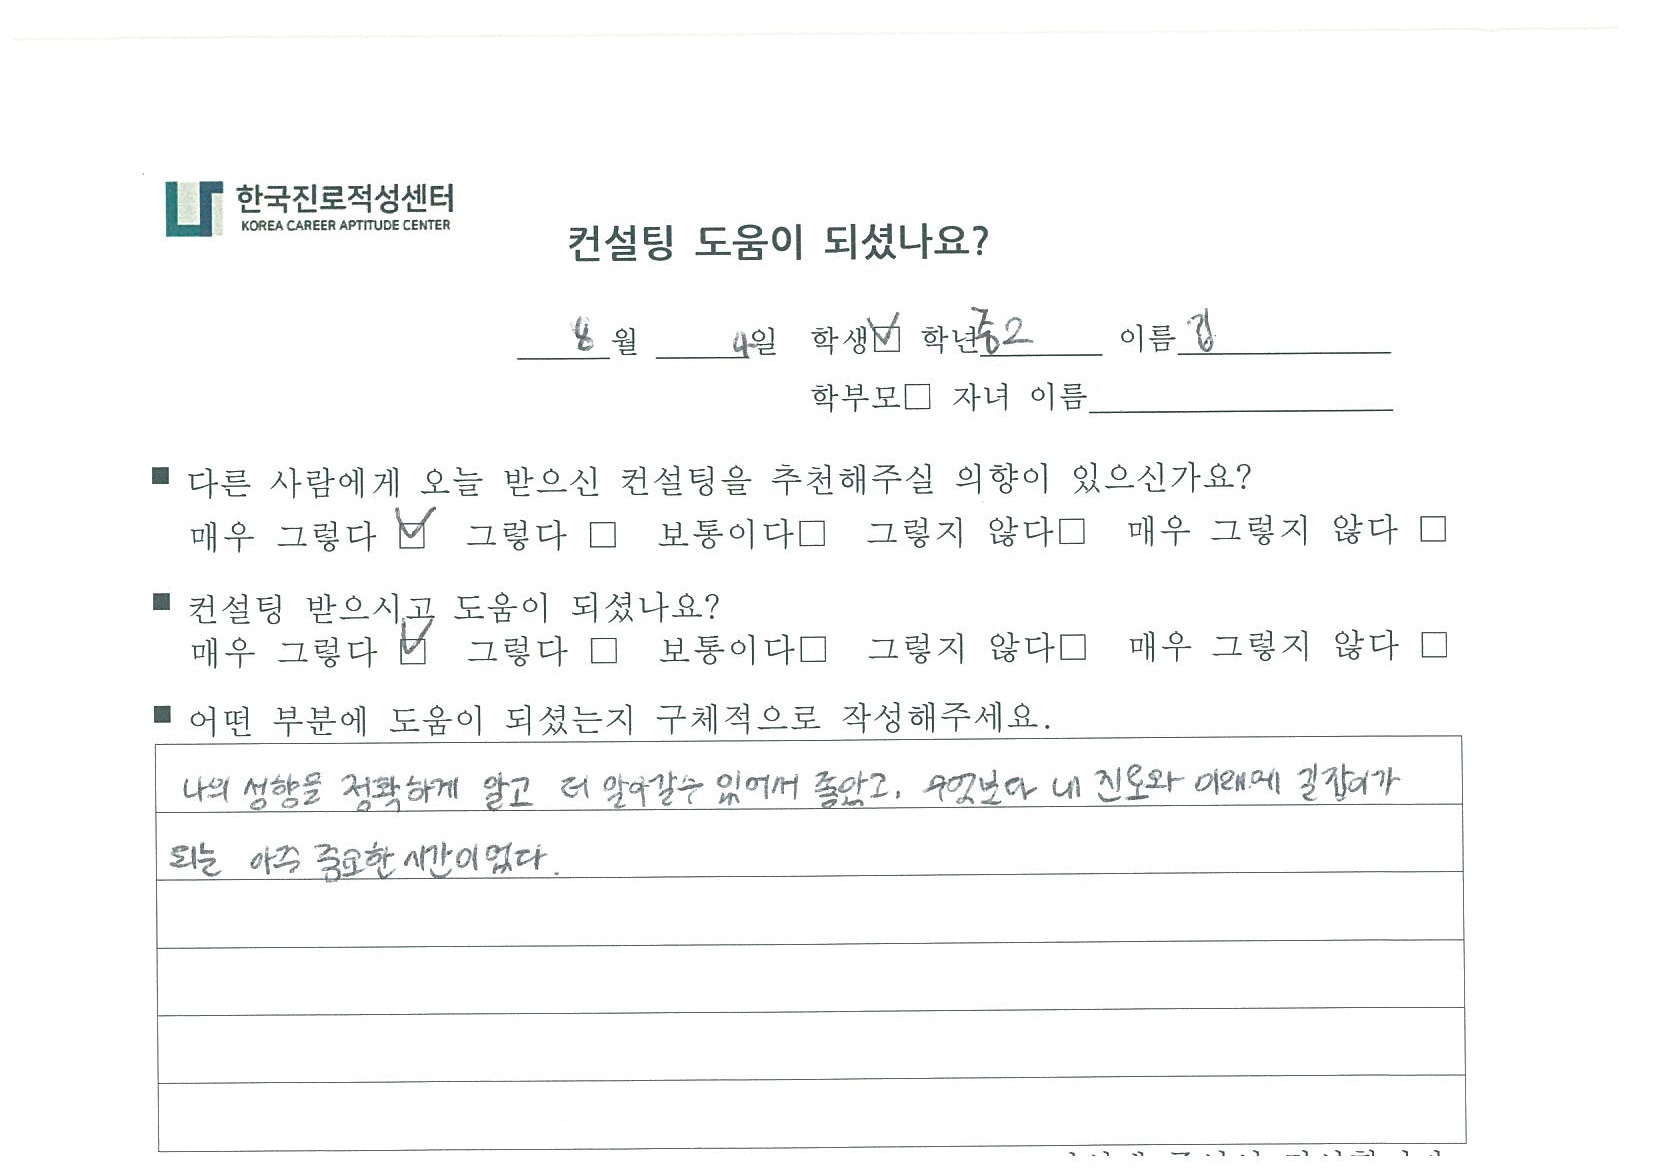 한국진로적성센터
KOREA CAREER APTITUDE CENTER
컨설팅 도움이 되셨나요?
8월 4일 학생☑ 학년중2 이름김
학부모□ 자녀 이름
■ 다른 사람에게 오늘 받으신 컨설팅을 추천해주실 의향이 있으신가요?
매우 그렇다 ☑ 그렇다 □ 보통이다□ 그렇지 않다□ 매우 그렇지 않다 □
■ 컨설팅 받으시고 도움이 되셨나요?
매우 그렇다 ☑ 그렇다 □ 보통이다□ 그렇지 않다□ 매우 그렇지 않다 □
■ 어떤 부분에 도움이 되셨는지 구체적으로 작성해주세요.
나의 성향을 정확하게 알고 더 알아갈수 있어서 좋았고, 무엇보다 내 진로와 미래에 길잡이가
되는 아주 중요한 시간이었다.